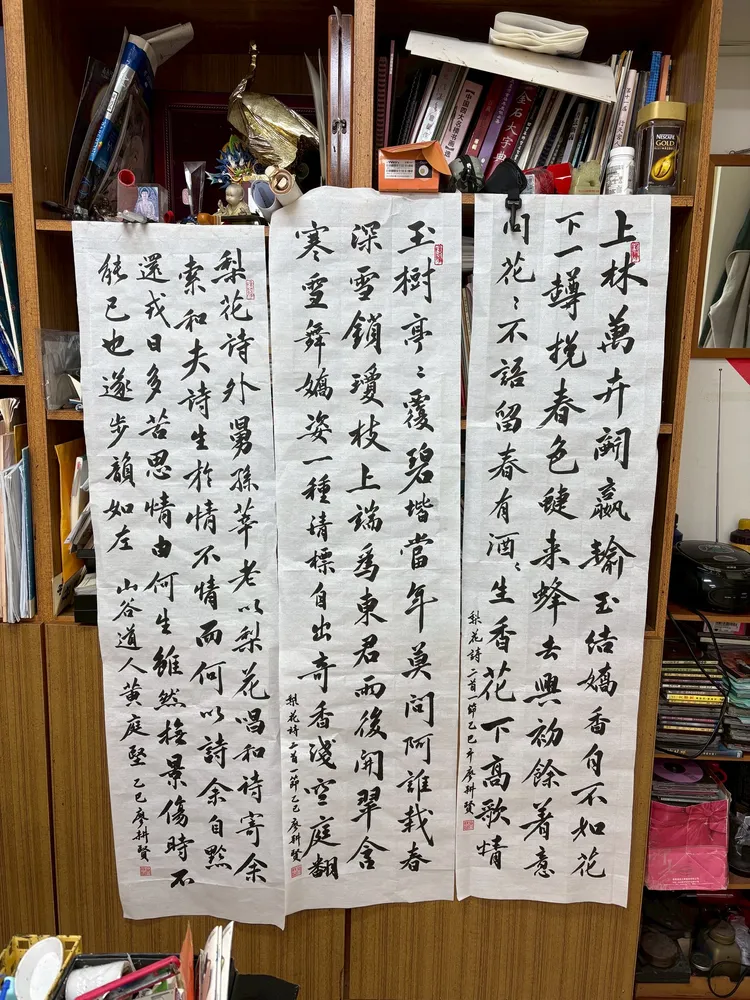 上林萬卉鬭嬴輸玉結嬌香自不如花
下一罇挽春色蝶来蜂去興初餘着意
问花〻不語留春有酒〻生香花下高歌情
梨花詩二首一節乙巳年廖耕賢
玉樹亭〻覆碧堦當年莫問阿誰栽春
深雪鎖瓊枝上端為東君雨後開翠含
寒雪舞嬌姿一種清標自出奇香淺空庭翻
梨花詩二首一節乙巳廖耕賢
梨花詩外舅孫莘老以梨花唱和詩寄余
索和夫詩生於情不情而何以詩余自黔
還戎日多苦思情由何生雖然撫景傷時不
能已也遂步韻如左 山谷道人黃庭堅 乙巳廖耕賢
金石大字典
NESCAFÉ
GOLD